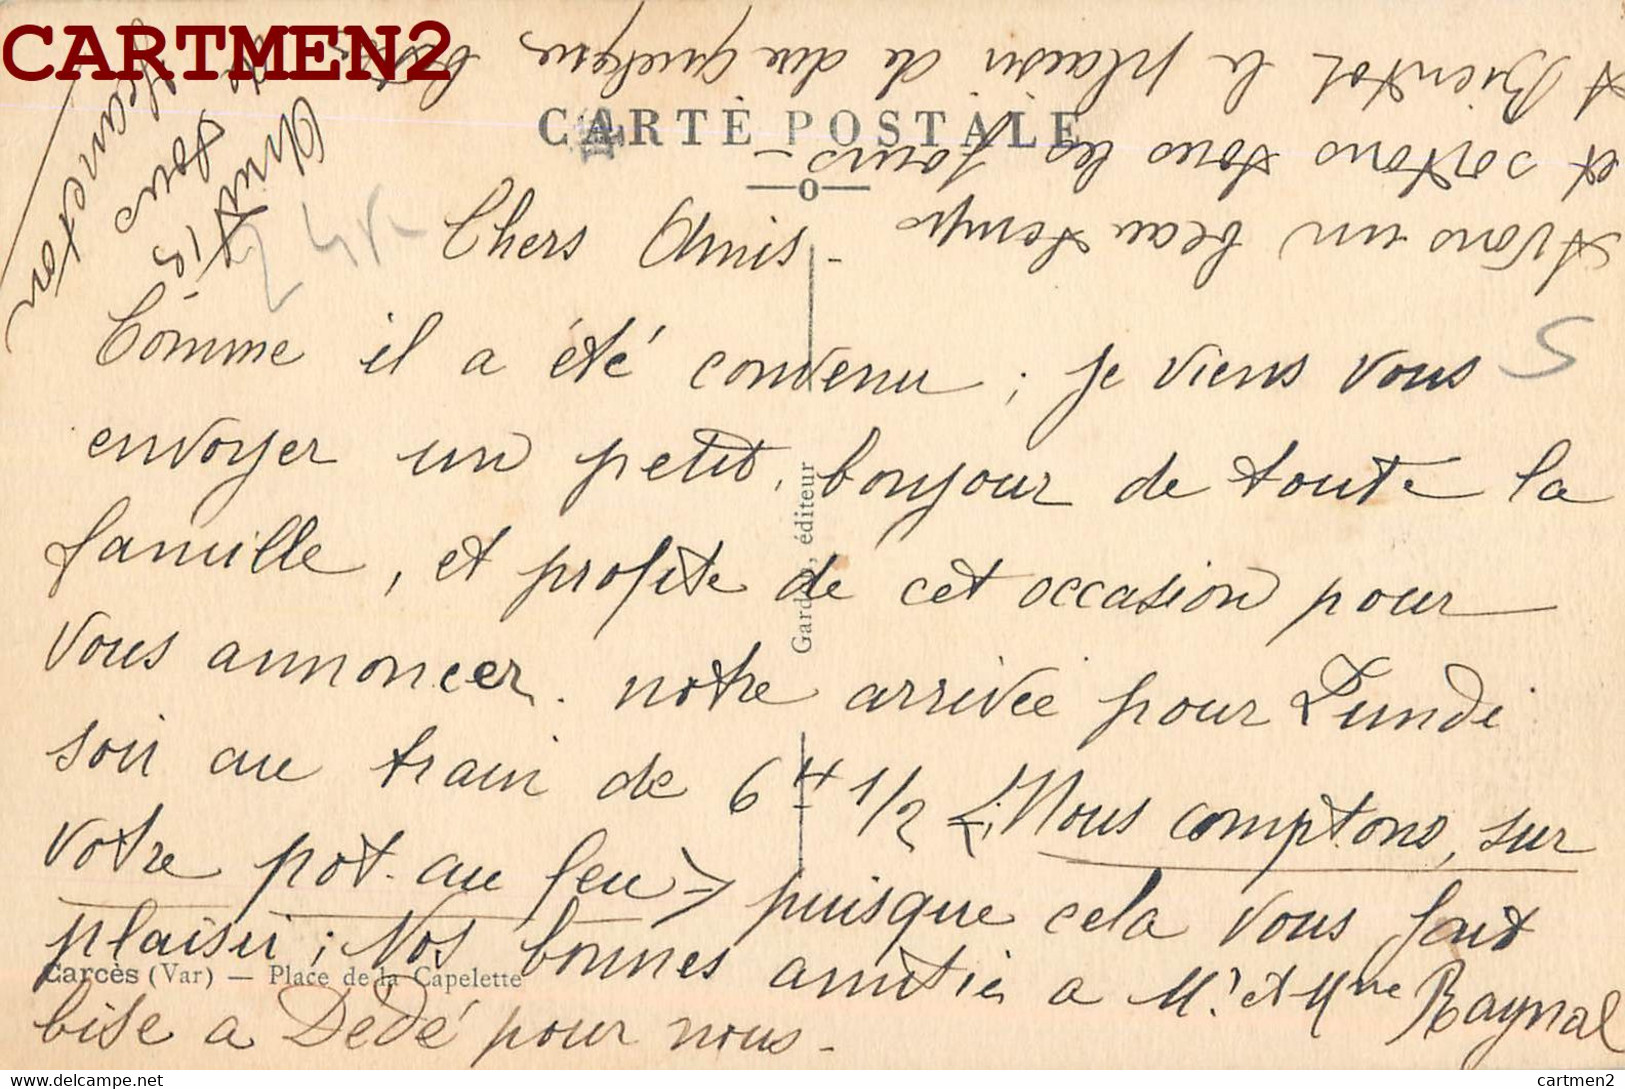 CARTMEN2
CARTE POSTALE
Chers Amis -
Comme il a été convenu ; je viens vous
envoyer un petit, bonjour de toute la
famille, et profite de cet occasion pour
vous annoncer. notre arrivée pour Lundi
soir au train de 6 H 1/2 Nous comptons, sur
votre pot. au feu puisque cela vous fait
plaisir ; Nos bonnes amitiés a Mr et Mme Raynal
bise a Dedé pour nous.
Avons un beau temps
et sortons tous les jours -
A Bientot le plaisir de
à tous
Jeanneton
S
Garde, éditeur
Carcès (Var) — Place de la Capelette
cartmen2